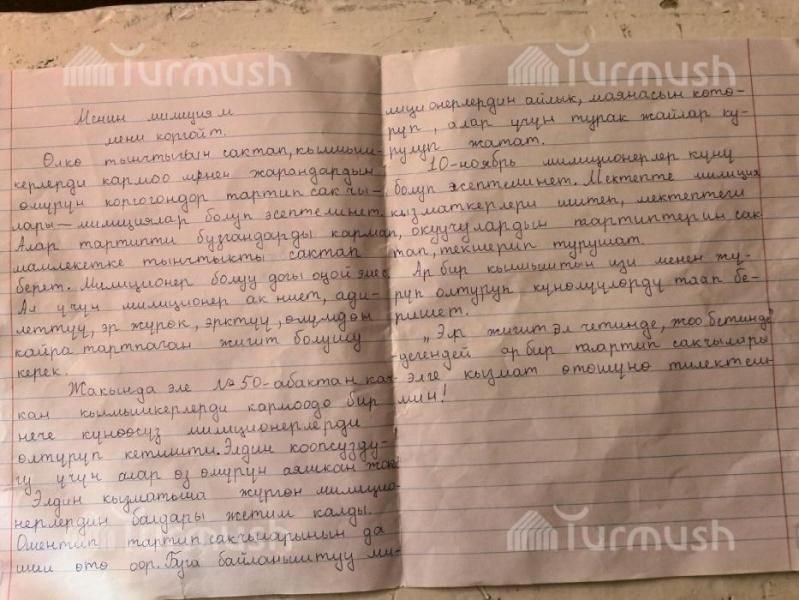 Turmush
Turmush
Менин милициям
мени коргойт.
Өлкө тынчтыгын сактап, кылмыш-
керлерди кармоо менен жарандардын
өмүрүн коргогондор тартип сакчы-
лары — милициялар болуп эсептелинет.
Алар тартипти бузгандарды кармап,
мамлекетке тынчтыкты сактап
берет. Милиционер болуу дагы оңой эмес.
Ал үчүн милиционер ак ниет, ади-
леттүү, эр жүрөк, эрктүү, өлүмдөн
кайра тартпаган жигит болушу
керек.
Жакында эле №50-абактан кач-
кан кылмышкерлерди кармоодо бир
нече күнөөсүз милиционерлерди
өлтүрүп кетишти. Элдин коопсузду-
гу үчүн алар өз өмүрүн аяшкан жок.
Элдин кызматына жүргөн милицио-
нерлердин балдары жетим калды.
Ошентип тартип сакчыларынын да
иши өтө оор. Буга байланыштуу ми-
лиционерлердин айлык, маянасын көтө-
рүп, алар үчүн турак жайлар ку-
рулуп жатат.
10-ноябрь милиционерлер күнү
болуп эсептелинет. Мектепте милиция
кызматкерлери иштеп, мектептеги
окуучулардын тартиптерин сак-
тап, текшерип турушат.
Ар бир кылмыштын изи менен жү-
рүп олтуруп күнөөлүүлөрдү таап бе-
ришет.
„Эр жигит эл четинде, жоо бетинде"
дегендей ар бир тартип сакчылары
элге кызмат өтөшүнө тилектеш-
мин!
Turmush
Turmush